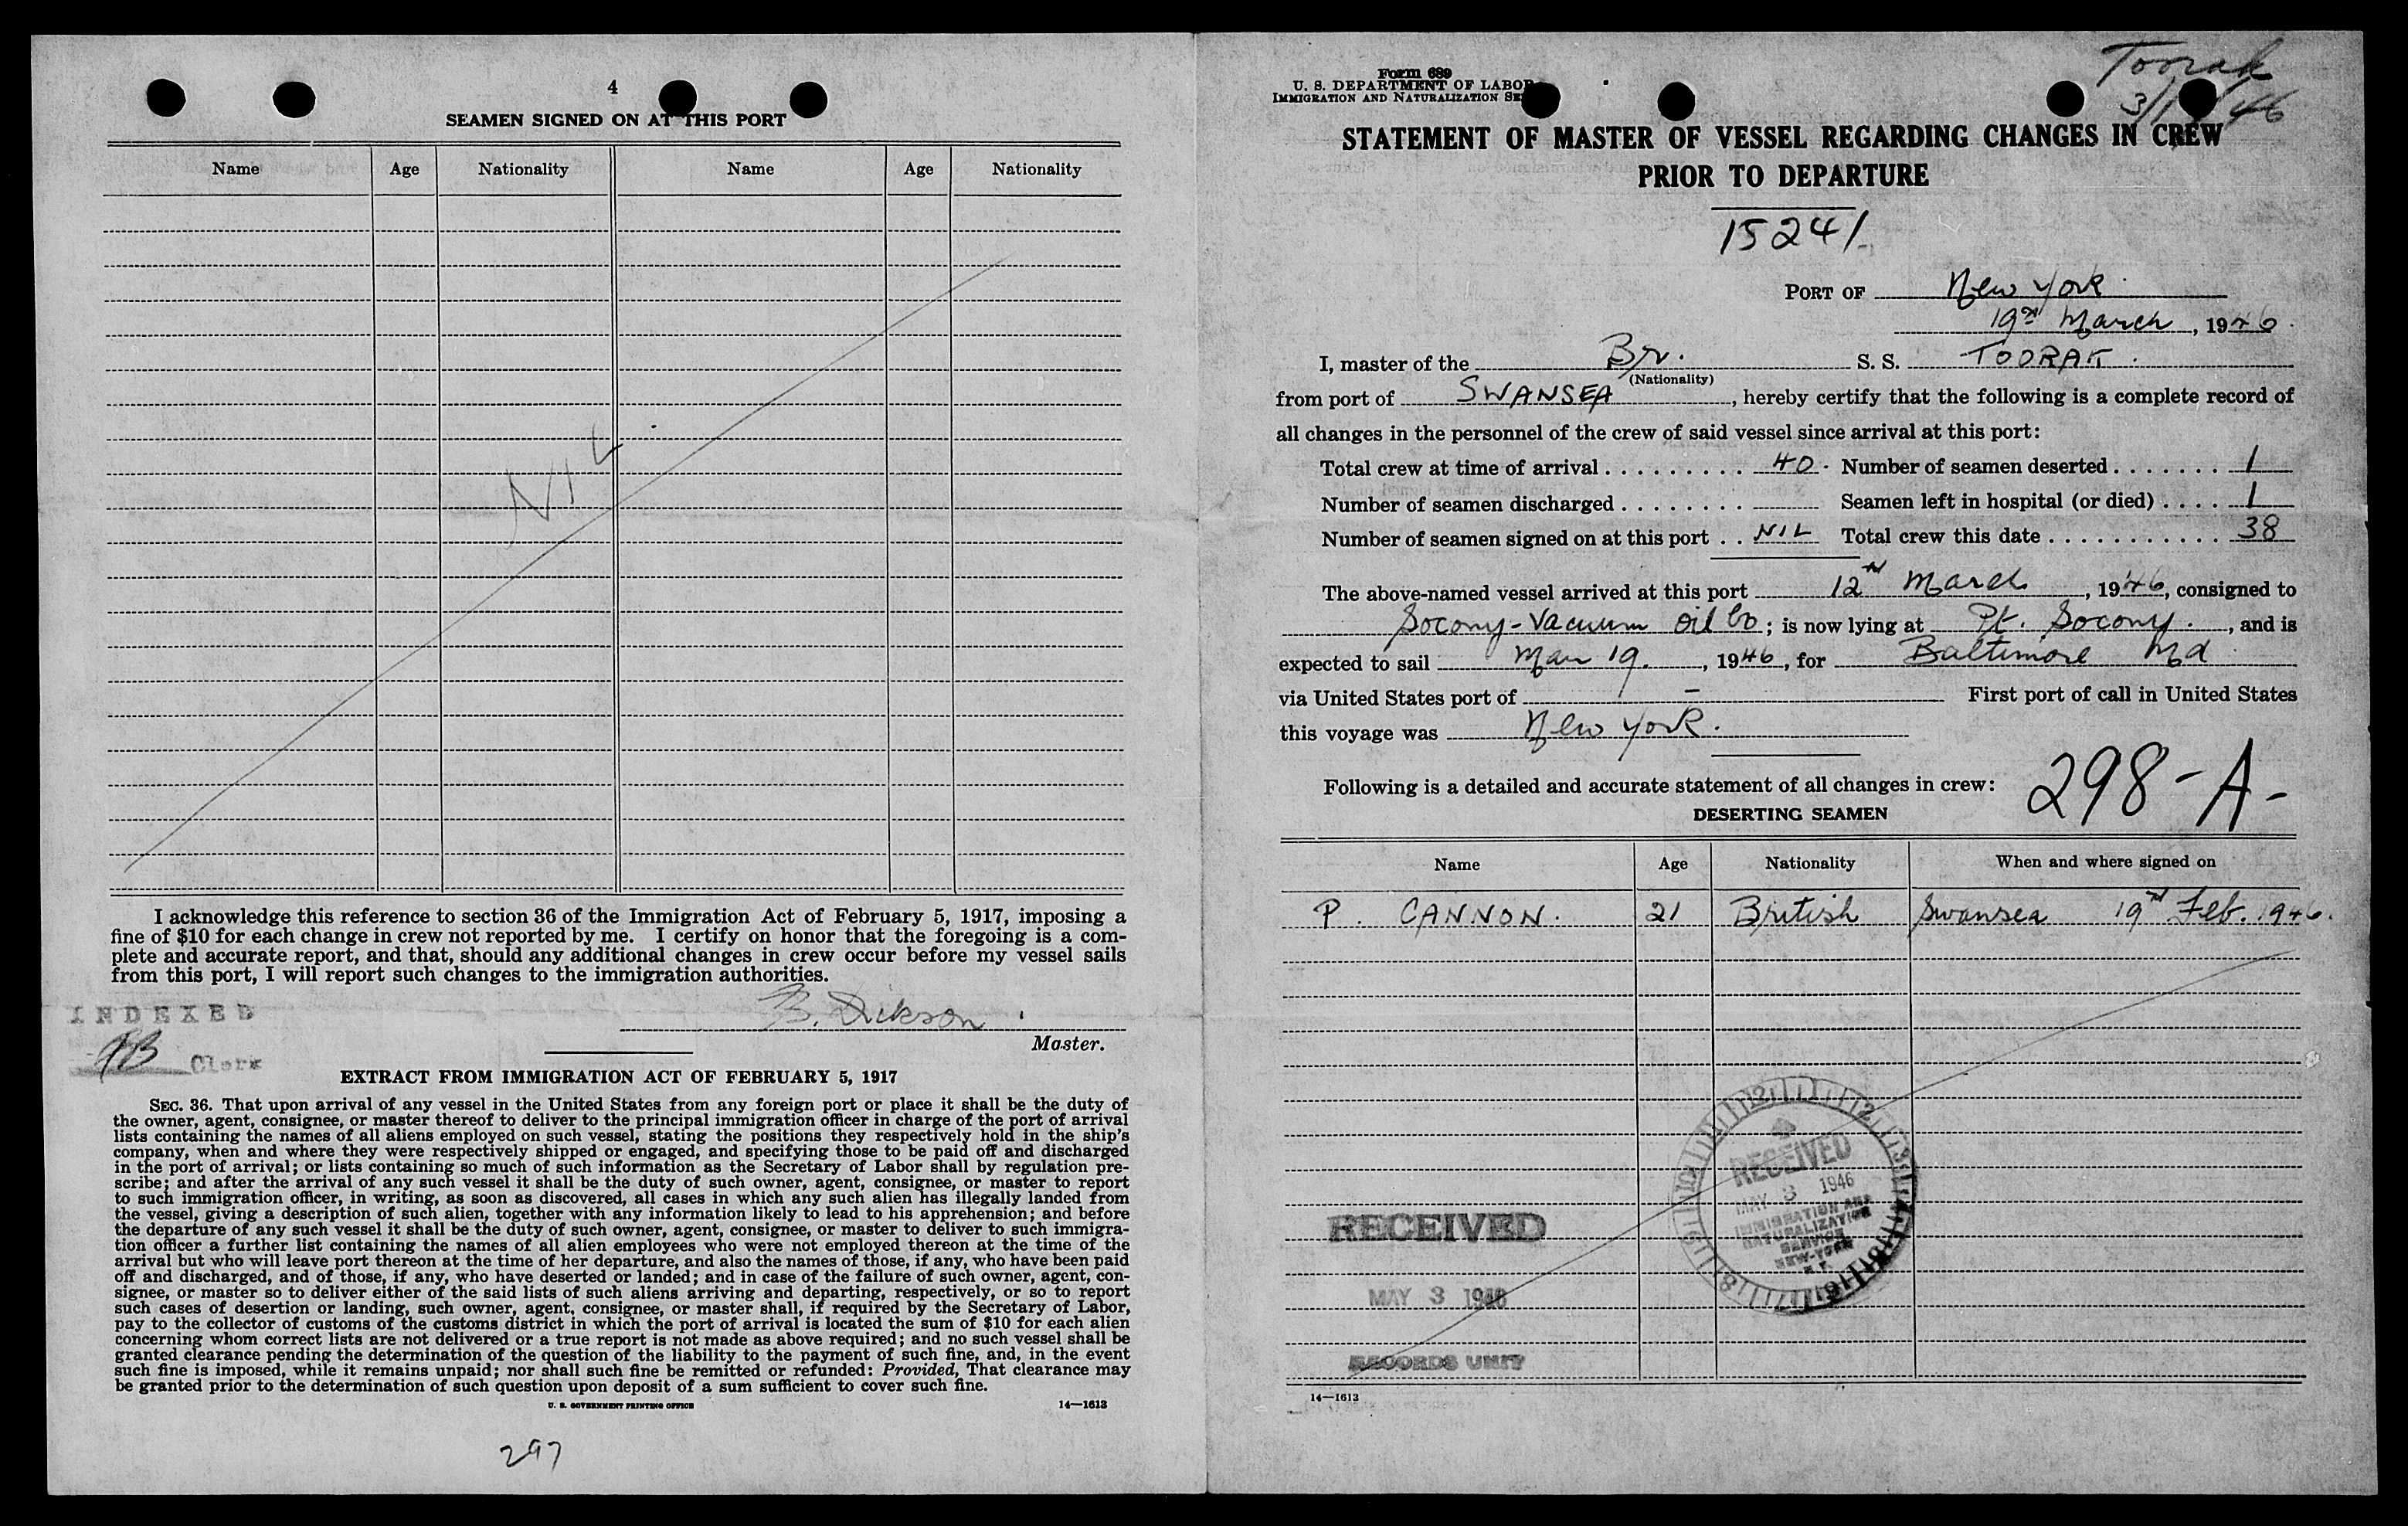 4
SEAMEN SIGNED ON AT THIS PORT
Name Age Nationality Name Age Nationality
NIL
I acknowledge this reference to section 36 of the Immigration Act of February 5, 1917, imposing a
fine of $10 for each change in crew not reported by me. I certify on honor that the foregoing is a com-
plete and accurate report, and that, should any additional changes in crew occur before my vessel sails
from this port, I will report such changes to the immigration authorities.
INDEXED
B. Dickson
Master.
Clerk
EXTRACT FROM IMMIGRATION ACT OF FEBRUARY 5, 1917
SEC. 36. That upon arrival of any vessel in the United States from any foreign port or place it shall be the duty of
the owner, agent, consignee, or master thereof to deliver to the principal immigration officer in charge of the port of arrival
lists containing the names of all aliens employed on such vessel, stating the positions they respectively hold in the ship's
company, when and where they were respectively shipped or engaged, and specifying those to be paid off and discharged
in the port of arrival; or lists containing so much of such information as the Secretary of Labor shall by regulation pre-
scribe; and after the arrival of any such vessel it shall be the duty of such owner, agent, consignee, or master to report
to such immigration officer, in writing, as soon as discovered, all cases in which any such alien has illegally landed from
the vessel, giving a description of such alien, together with any information likely to lead to his apprehension; and before
the departure of any such vessel it shall be the duty of such owner, agent, consignee, or master to deliver to such immigra-
tion officer a further list containing the names of all alien employees who were not employed thereon at the time of the
arrival but who will leave port thereon at the time of her departure, and also the names of those, if any, who have been paid
off and discharged, and of those, if any, who have deserted or landed; and in case of the failure of such owner, agent, con-
signee, or master so to deliver either of the said lists of such aliens arriving and departing, respectively, or so to report
such cases of desertion or landing, such owner, agent, consignee, or master shall, if required by the Secretary of Labor,
pay to the collector of customs of the customs district in which the port of arrival is located the sum of $10 for each alien
concerning whom correct lists are not delivered or a true report is not made as above required; and no such vessel shall be
granted clearance pending the determination of the question of the liability to the payment of such fine, and, in the event
such fine is imposed, while it remains unpaid; nor shall such fine be remitted or refunded: Provided, That clearance may
be granted prior to the determination of such question upon deposit of a sum sufficient to cover such fine.
U. S. GOVERNMENT PRINTING OFFICE 14—1613
297
Form 689
U. S. DEPARTMENT OF LABOR
IMMIGRATION AND NATURALIZATION
Toorak
STATEMENT OF MASTER OF VESSEL REGARDING CHANGES IN CREW
PRIOR TO DEPARTURE
15241
PORT OF New York
19th March, 1946
I, master of the Br. S. S. TOORAK.
(Nationality)
from port of SWANSEA, hereby certify that the following is a complete record of
all changes in the personnel of the crew of said vessel since arrival at this port:
Total crew at time of arrival 40. Number of seamen deserted 1
Number of seamen discharged Seamen left in hospital (or died) 1
Number of seamen signed on at this port NIL Total crew this date 38
The above-named vessel arrived at this port 12th March, 1946, consigned to
Socony-Vacuum Oil Co; is now lying at Pt. Socony., and is
expected to sail Mar 19., 1946, for Baltimore Md
via United States port of – First port of call in United States
this voyage was New York.
Following is a detailed and accurate statement of all changes in crew:
298-A-
DESERTING SEAMEN
Name Age Nationality When and where signed on
P. CANNON. 21 British Swansea 19th Feb. 1946.
RECEIVED
MAY 3 1946
IMMIGRATION AND
NATURALIZATION
SERVICE
NEW-YORK
N.Y.
RECEIVED
MAY 3 1946
RECORDS UNIT
14—1613